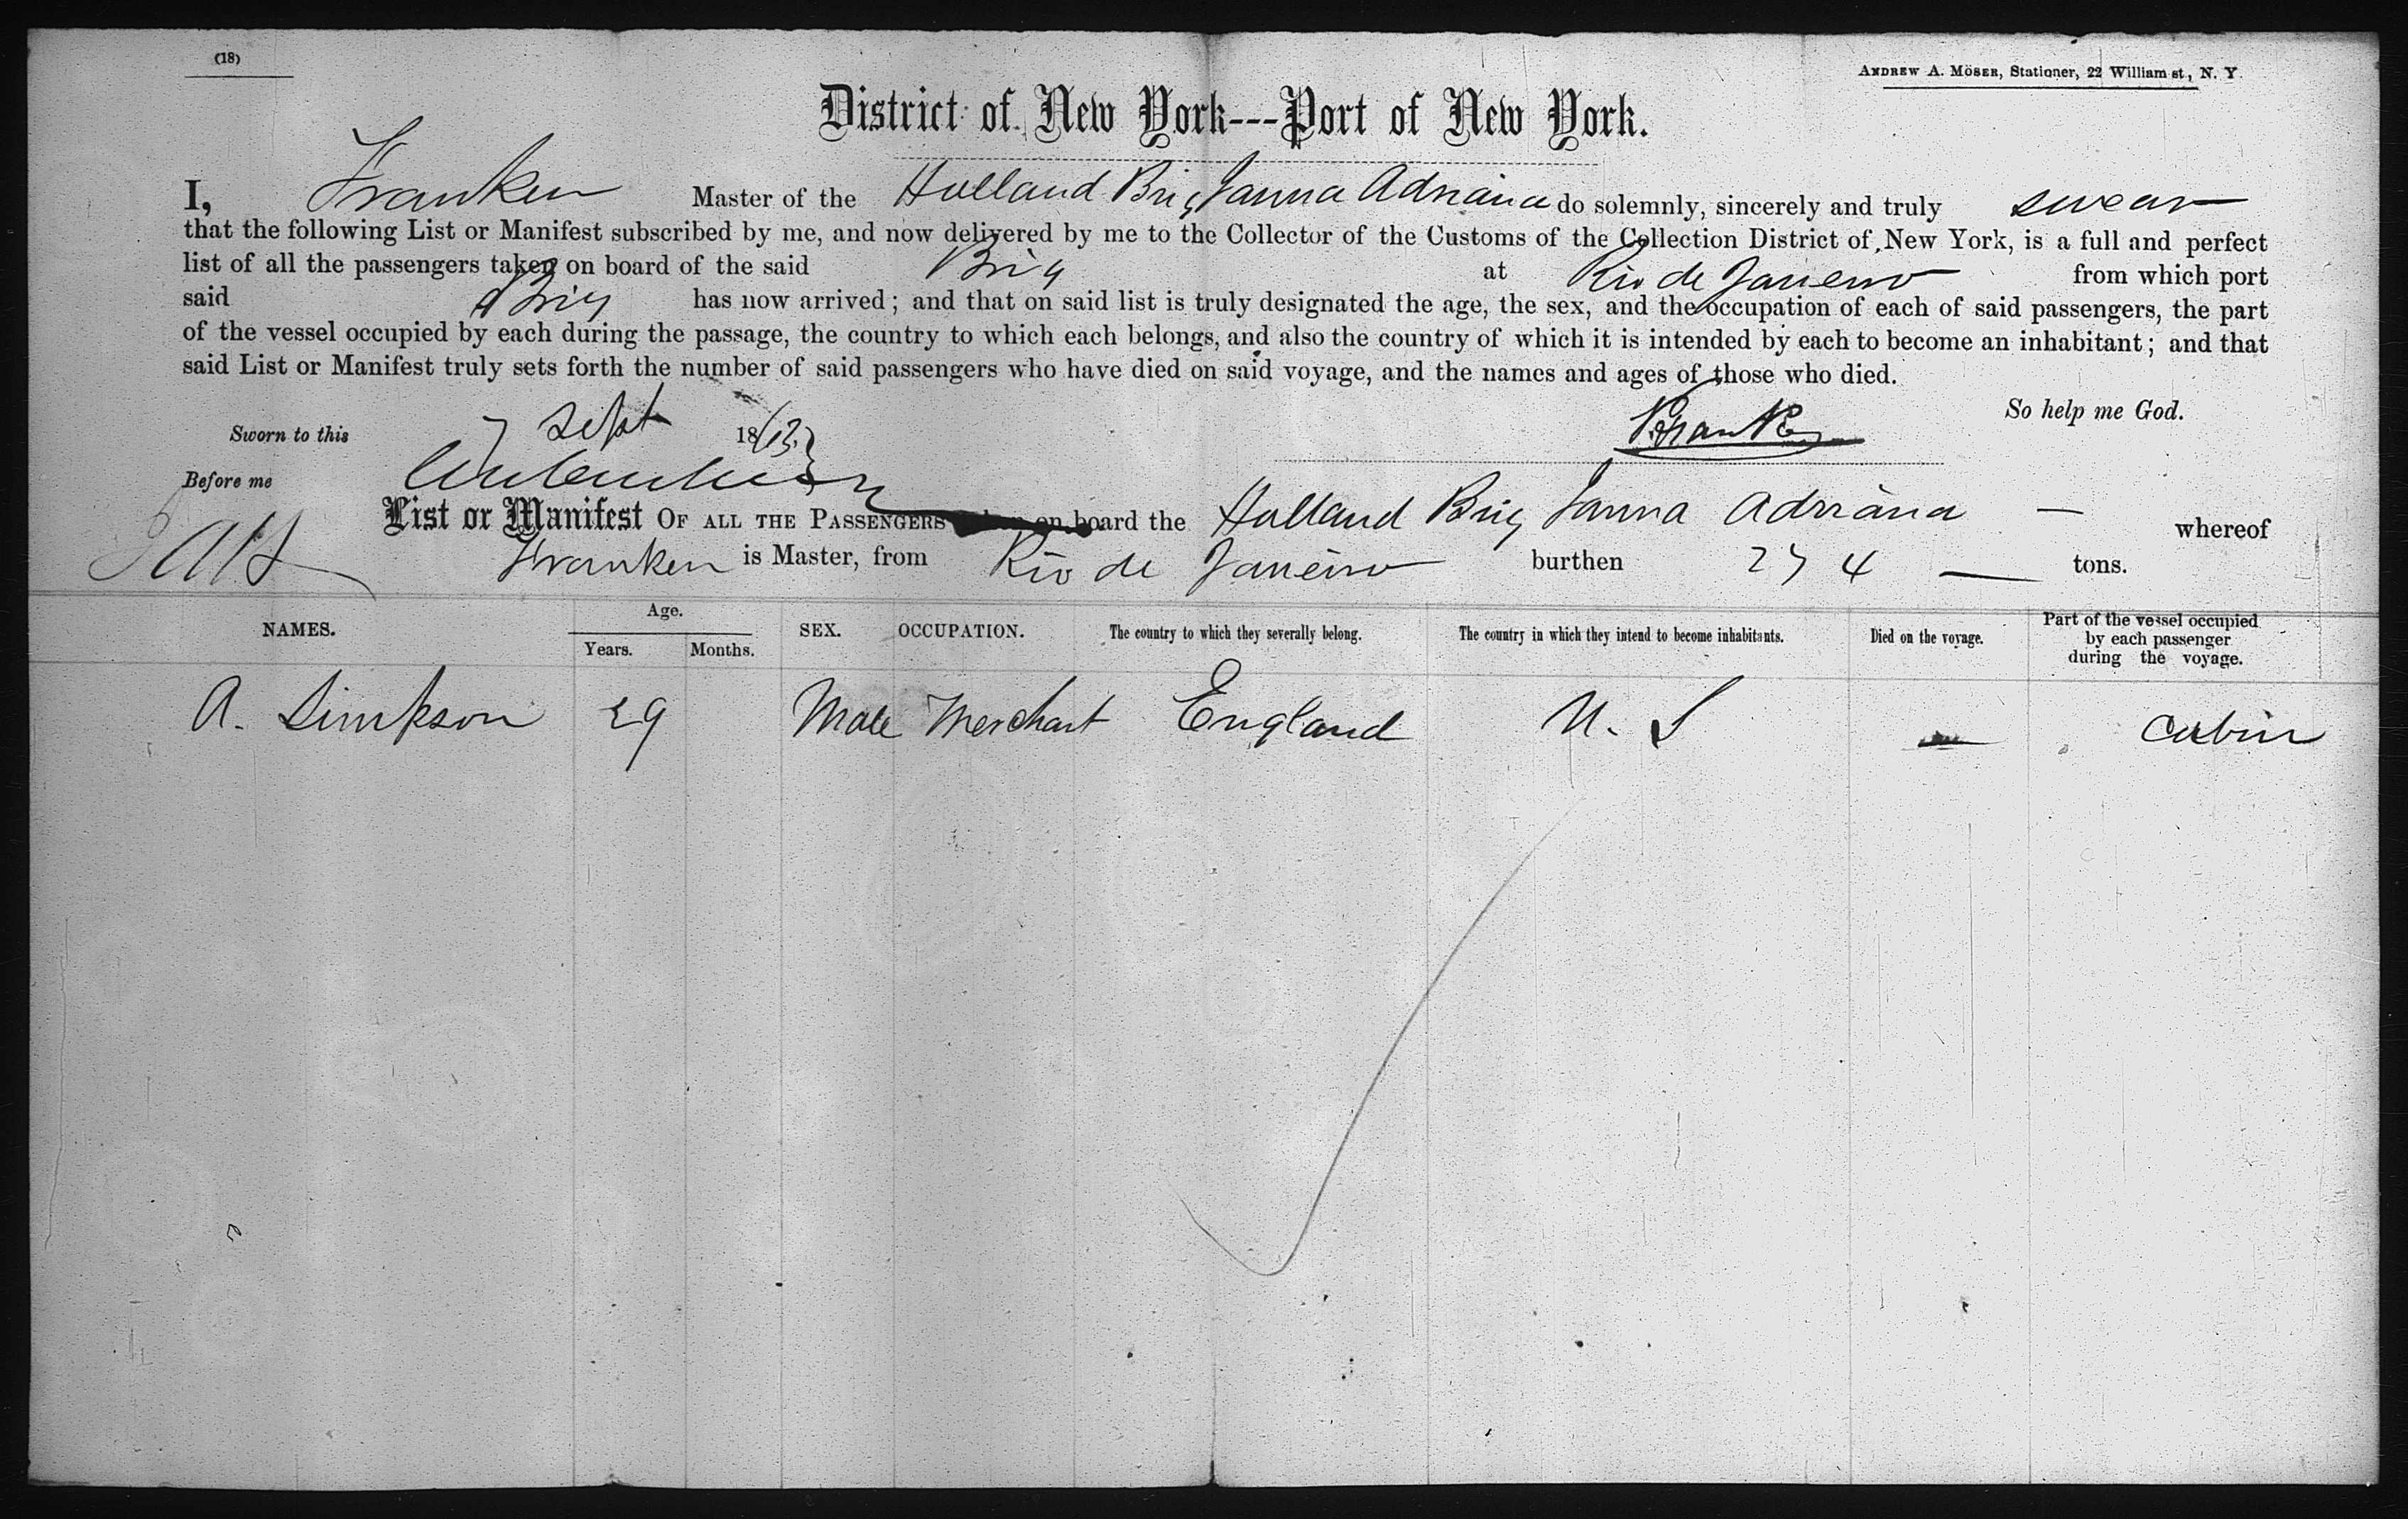 (18)
ANDREW A. MÖSER, Stationer, 22 William st., N. Y.
District of New York---Port of New York.
I, Franken Master of the Holland Brig Janna Adriana do solemnly, sincerely and truly swear
that the following List or Manifest subscribed by me, and now delivered by me to the Collector of the Customs of the Collection District of New York, is a full and perfect
list of all the passengers taken on board of the said Brig at Rio de Janeiro from which port
said Brig has now arrived; and that on said list is truly designated the age, the sex, and the occupation of each of said passengers, the part
of the vessel occupied by each during the passage, the country to which each belongs, and also the country of which it is intended by each to become an inhabitant; and that
said List or Manifest truly sets forth the number of said passengers who have died on said voyage, and the names and ages of those who died.
So help me God.
Sworn to this 7 Sept 1863
Before me
List or Manifest OF ALL THE PASSENGERS taken on board the Holland Brig Janna Adriana — whereof
Franken is Master, from Rio de Janeiro burthen 274 — tons.
NAMES. Age. Years. Months. SEX. OCCUPATION. The country to which they severally belong. The country in which they intend to become inhabitants. Died on the voyage. Part of the vessel occupied by each passenger during the voyage.
A. Simkson 29 Male Merchant England U. S — Cabin